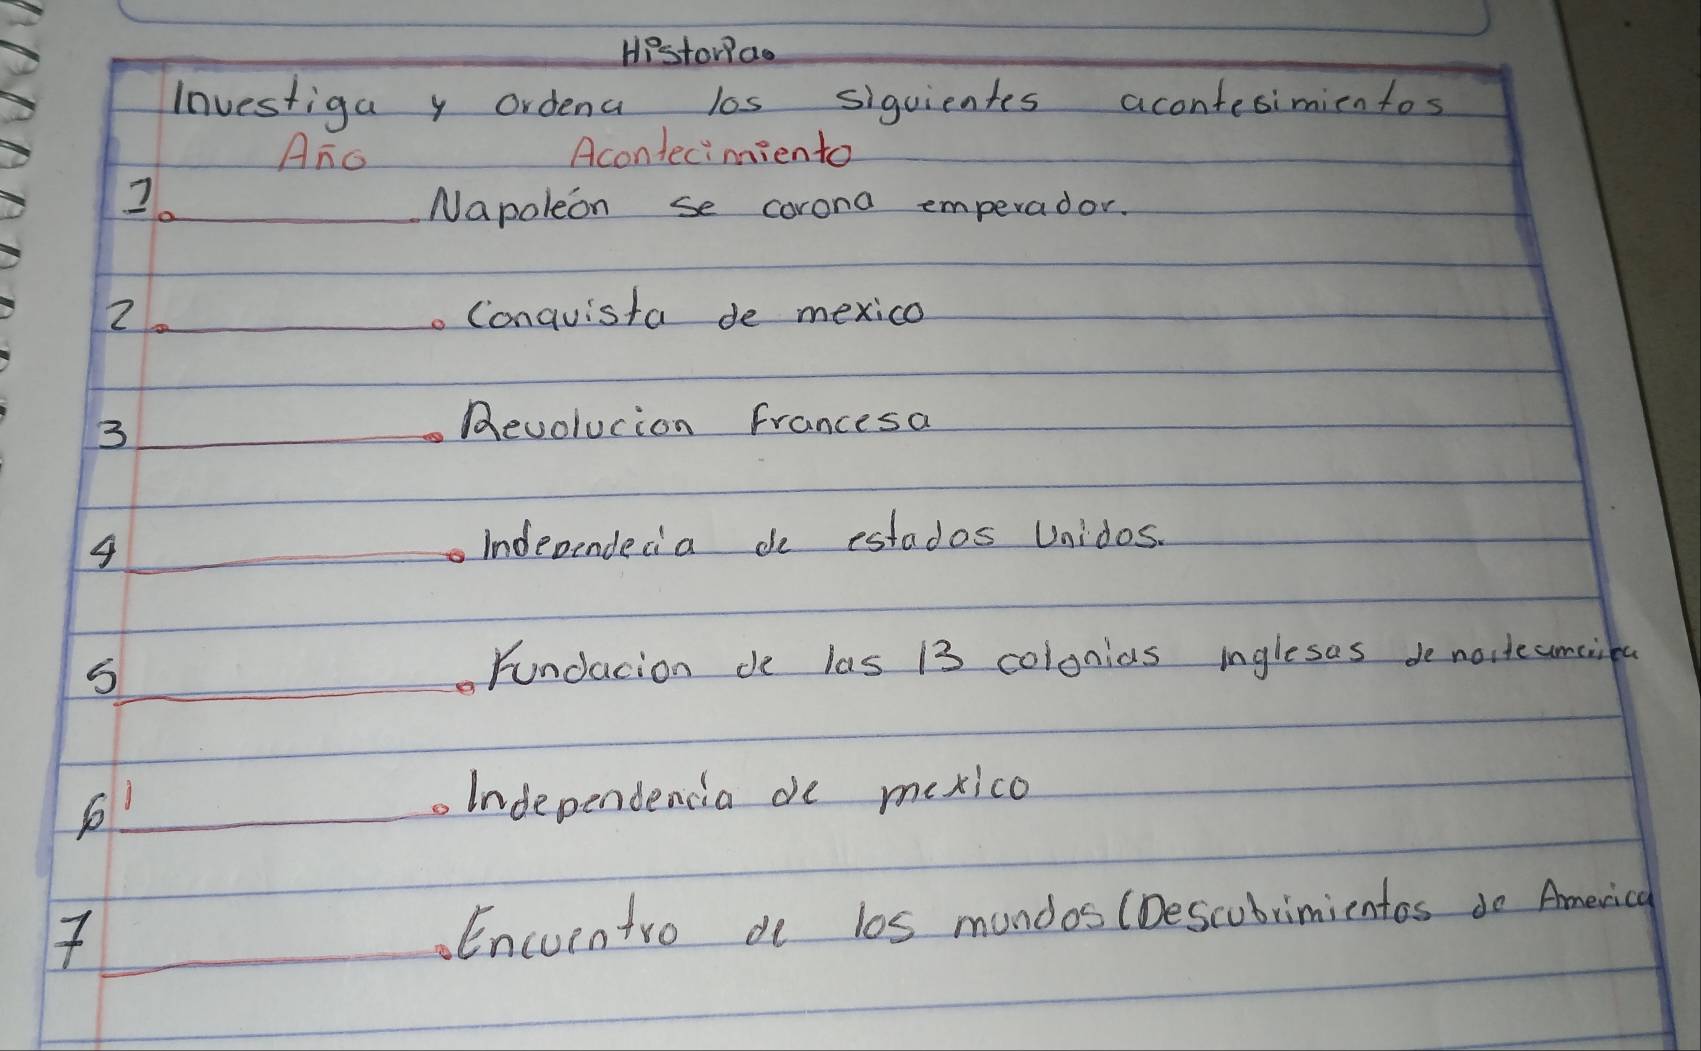 Historia.
Investiga y ordena los siguientes acontesimientos
Año Acontecimiento
1. Napoleón se corona emperador.
2. Conquista de mexico
3 . Revolucion Francesa
4 . Independecia de estados Unidos.
5 . Fundacion de las 13 colonias inglesas de norteamerica
6 . Independencia de mexico
7 . Encuentro de los mundos (Descubrimientos de America